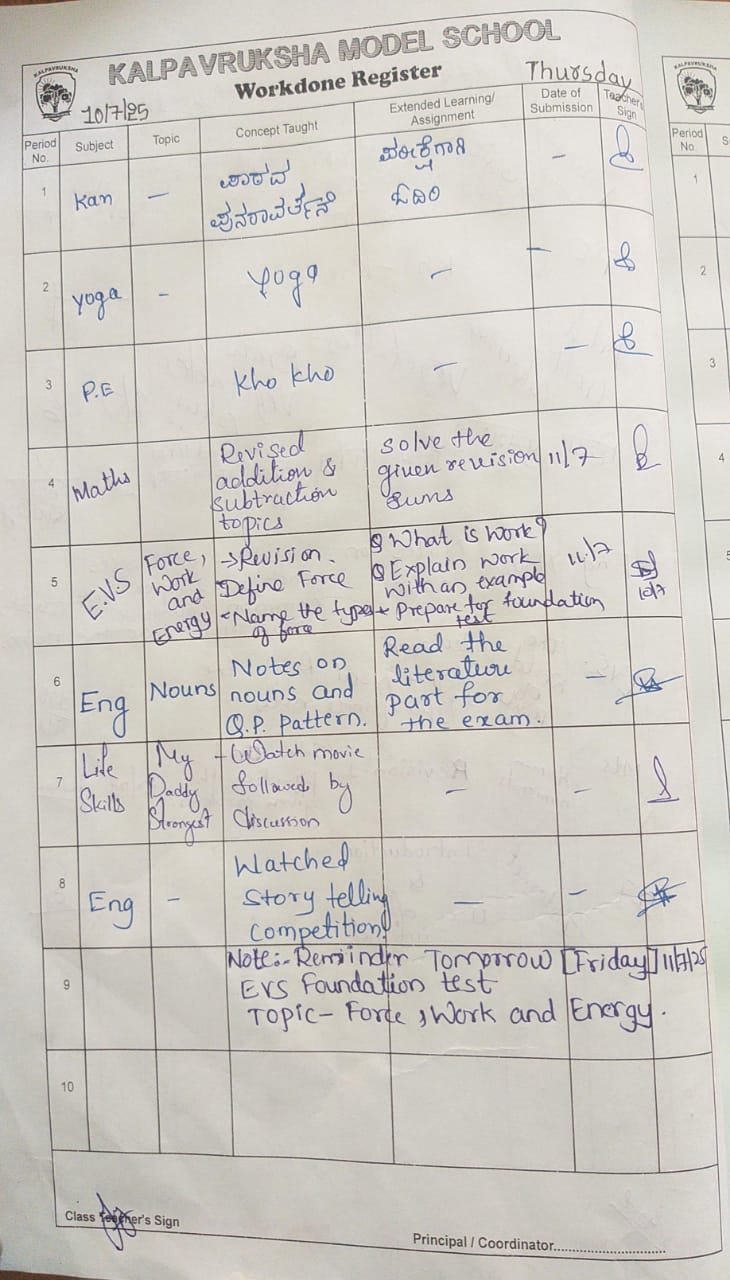 KALPAVRUKSHA MODEL SCHOOL
KALPAVRUKSHA
Workdone Register
10/7/25
Thursday
Period No.
Subject
Topic
Concept Taught
Extended Learning/ Assignment
Date of Submission
Teacher's Sign
1
Kan
–
ಪಾಠದ
ಪುನರಾವರ್ತನೆ
ಪರೀಕ್ಷೆಗಾಗಿ
ಓದಿರಿ
–
2
Yoga
–
Yoga
–
–
3
P.E
Kho Kho
–
–
4
Maths
Revised
addition &
subtraction
topics
solve the
given revision
sums
11/7
5
E.V.S
Force,
Work
and
Energy
→Revision.
Define Force
Name the types
of force
Q What is work?
Q Explain work
with an example
* Prepare for foundation
test
11/7
10/7
6
Eng
Nouns
Notes on
nouns and
Q.P. pattern.
Read the
literature
part for
the exam.
–
7
Life
Skills
My
Daddy
Strongest
Watch movie
followed by
discussion
–
–
8
Eng
–
Watched
Story telling
competition
–
–
9
Note:- Reminder Tomorrow [Friday] 11/7/25
EVS Foundation test
Topic – Force, Work and Energy.
10
Class Teacher's Sign
Principal / Coordinator
KALPAVRUKSHA
Period No.
S
1
2
3
4